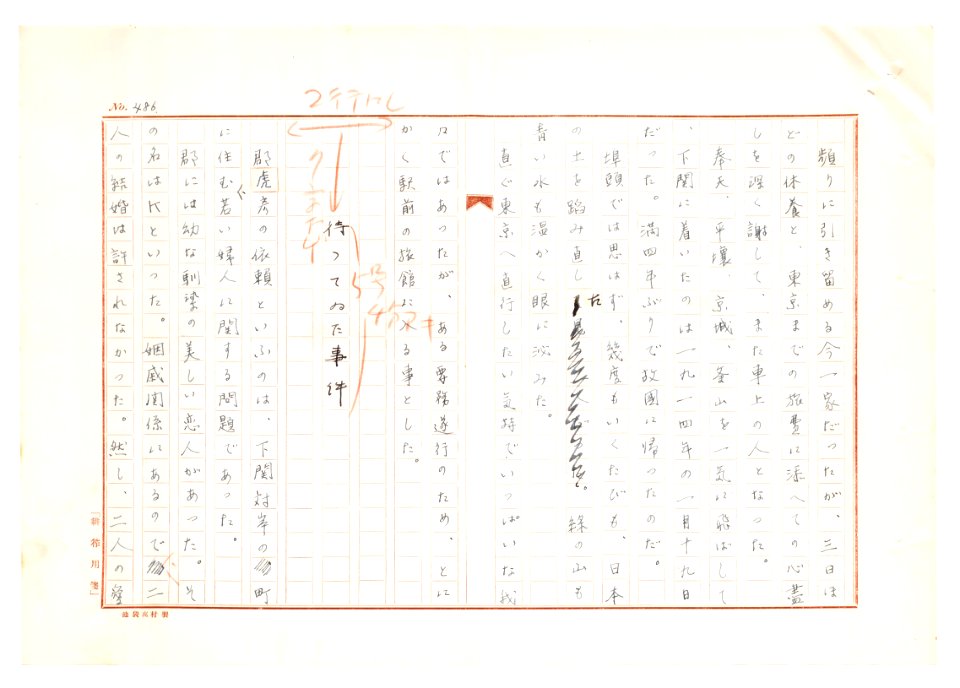 No. 486
頻りに引き留める今一家だったが、三日ほ
どの休養と、東京までの旅費に添へての心盡
しを深く謝して、また車上の人となった。
奉天、平壤、京城、釜山を一気に飛ばして
、下関に着いたのは一九一四年の一月十九日
だった。満四年ぶりで故國に帰ったのだ。
埠頭では思はず、幾度もいくたびも、日本
の土を踏み直した。緑の山も
青い水も温かく眼に沁みた。
直ぐ東京へ直行したい気持でいっぱいな我
々ではあったが、ある要務遂行のため、とに
かく駅前の旅館に入る事とした。
2行
待ってゐた事件
5号
郡虎彦の依頼といふのは、下関対岸の町
に住む若い婦人に関する問題であった。
郡には幼な馴染の美しい恋人があった。そ
の名はKといった。姻戚関係にあるので二
人の結婚は許されなかった。然し、二人の愛